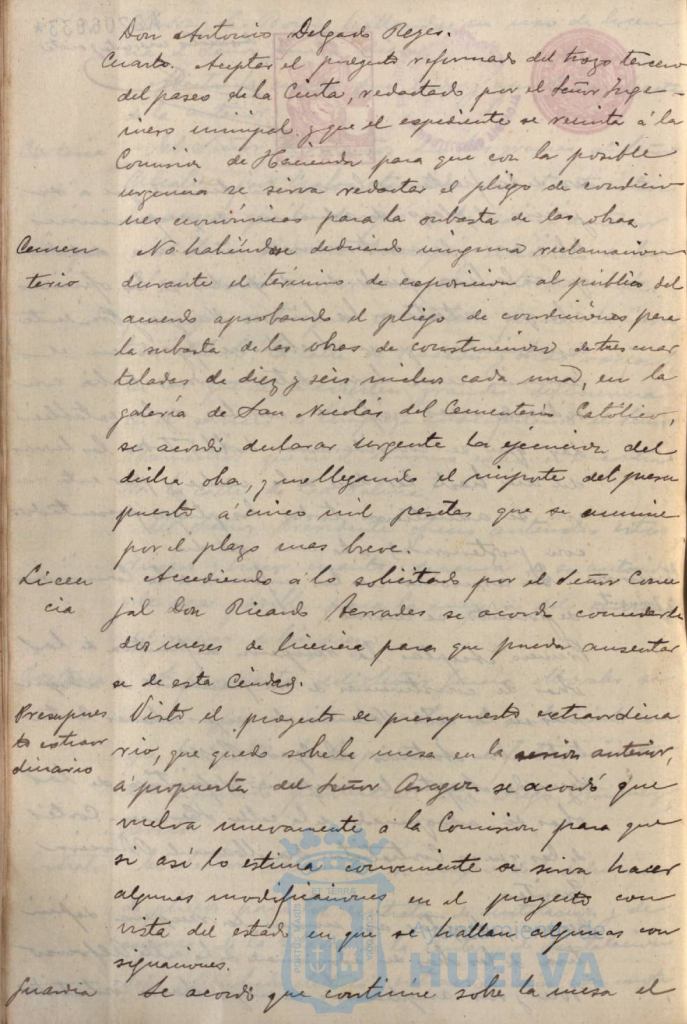 Don Antonio Delgado Reyes.
Cuarto. Aceptar el proyecto reformado del trozo tercero
del paseo de la Cinta, redactado por el Señor Inge-
niero municipal y que el expediente se remita á la
Comision de Hacienda para que con la posible
urgencia se sirva redactar el pliego de condicio
nes económicas para la subasta de las obras
Cemen
terio
No habiéndose deducido ninguna reclamacion
durante el término de exposicion al público del
acuerdo aprobando el pliego de condiciónes para
la subasta de las obras de construccion de tres mar
teladas de diez y seis nichos cada una, en la
galería de San Nicolás del Cementerio Católico,
se acordó declarar urgente la ejecucion del
dicha oba, y no llegando el importe del presu
puesto á cinco mil pesetas que se anuncie
por el plazo mas breve.
Licen
cia
Accediendo á lo solicitado por el Señor Conce
jal Don Ricardo Terrades se acordó concederle
dos meses de licencia para que pueda ausentar
se de esta Ciudad.
Presupues
to extraor
dinario
Visto el proyecto de presupuesto extraordina
rio, que quedó sobre la mesa en la sesion anterior,
á propuesta del Señor Aragon se acordó que
vuelva nuevamente á la Comision para que
si así lo estima conveniente se sirva hacer
algunas modificaciones en el proyecto con
vista del estado en que se hallan algunas con
signaciones.
Guardia
Se acordó que continúe sobre la mesa el
Ayuntamiento de
HUELVA
PORTUS MARIS ET TERRAE CUSTODIA